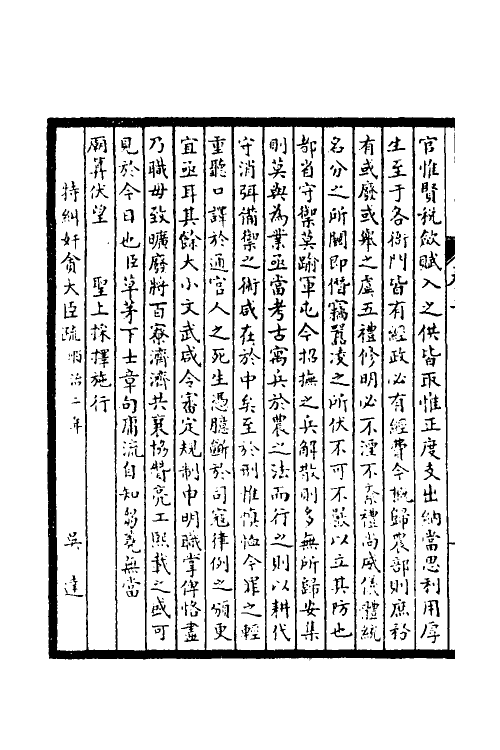 官惟賢稅斂賦入之供皆取惟正度支出納當思利用厚
生至于各衙門皆有經政必有經費今概歸農部則庶務
有或廢或舉之虞五禮修明必不淫不紊禮尚威儀體統
名分之所關即僭竊凌之所伏不可不嚴以立其防也
部省守禦莫踰軍屯今招撫之兵解散則多無所歸安集
則莫與為業亟當考古寓兵於農之法而行之則以耕代
守消弭備禦之術咸在於中矣至於刑惟慎恤今罪之輕
重聽口譯於通官人之死生憑臆斷於司寇律例之頒更
宜亟耳其餘大小文武咸令審定規制申明職掌俾恪盡
乃職毋致曠廢將百寮濟濟共襄協贊亮工熙載之盛可
見於今日也臣草茅下士章句庸流自知芻蕘無當
廟算伏望 聖上採擇施行
特糾奸貪大臣疏順治二年 吳達